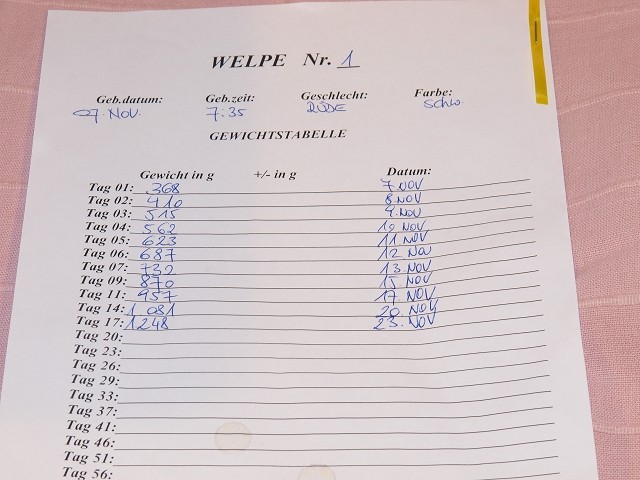 WELPE Nr. 1
Geb.datum: Geb.zeit: Geschlecht: Farbe:
07. NOV. 7:35 RÜDE Schw.
GEWICHTSTABELLE
Gewicht in g +/- in g Datum:
Tag 01: 368 7 NOV
Tag 02: 410 8 NOV
Tag 03: 515 9. NOV
Tag 04: 562 10 NOV
Tag 05: 623 11 NOV
Tag 06: 687 12 NOV
Tag 07: 732 13. NOV
Tag 09: 870 15 NOV
Tag 11: 957 17 NOV
Tag 14: 1 081 20 NOV
Tag 17: 1248 23. NOV
Tag 20:
Tag 23:
Tag 26:
Tag 29:
Tag 33:
Tag 37:
Tag 41:
Tag 46:
Tag 51:
Tag 56: